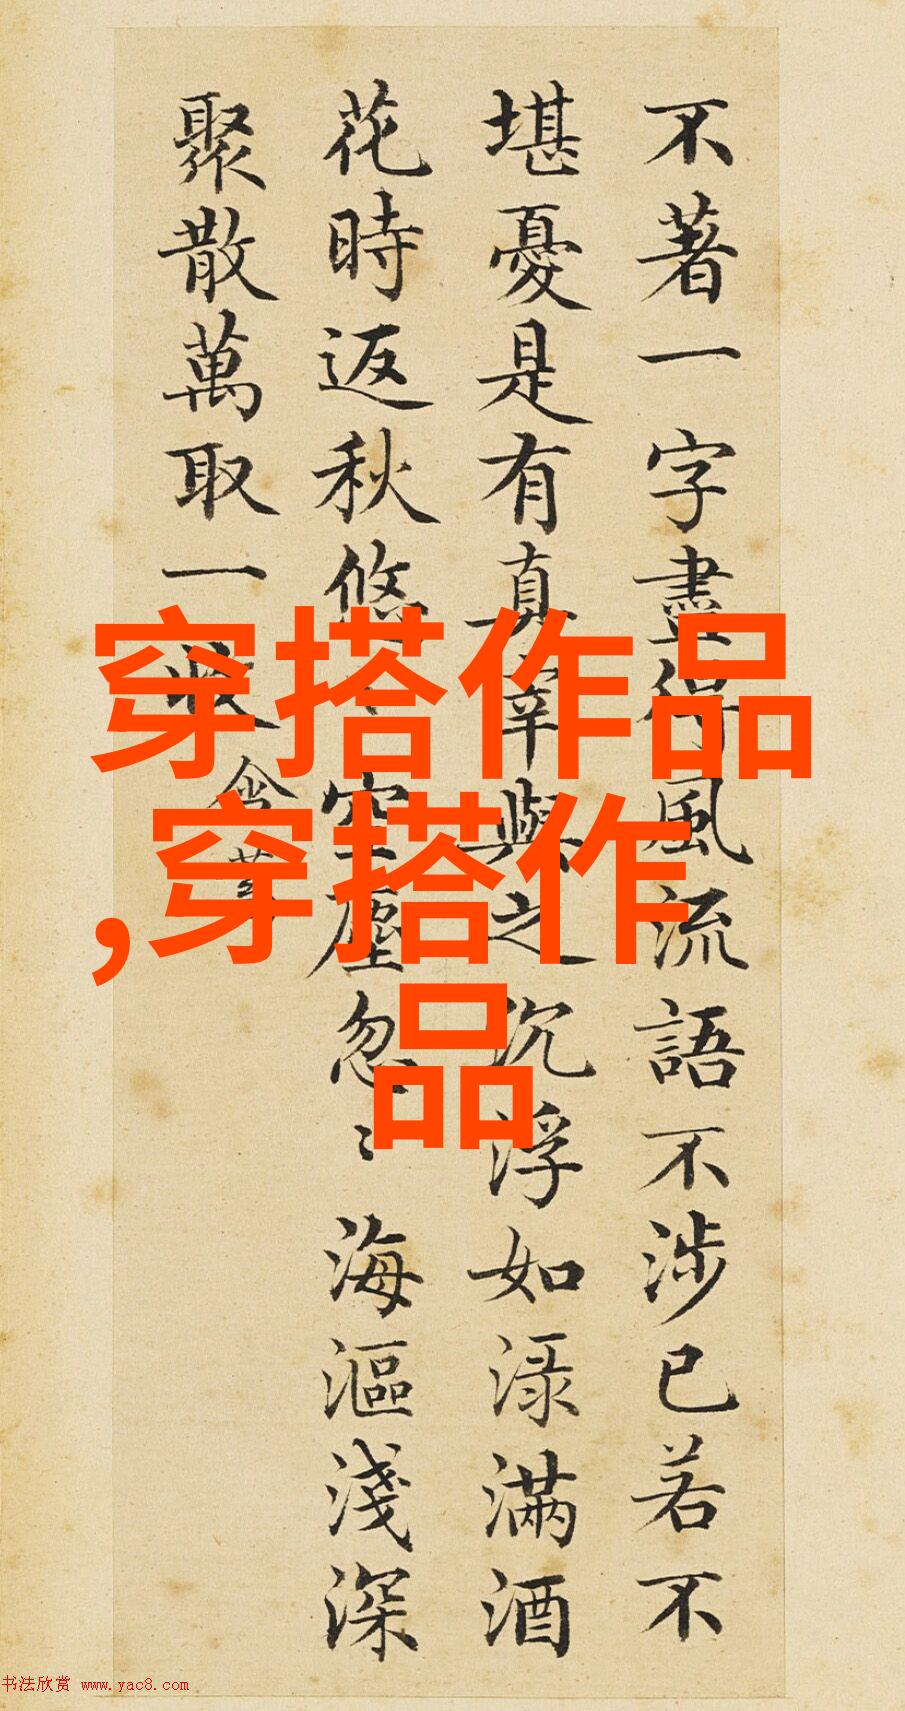 不著一字盡得風流語不涉已若不
堪憂是有真宰與之沉浮如淥滿酒
花時返秋悠〻空塵忽〻海漚淺深
聚散萬取一收
含蓄
穿搭作品
,穿搭作
品
书法欣赏 www.yac8.com